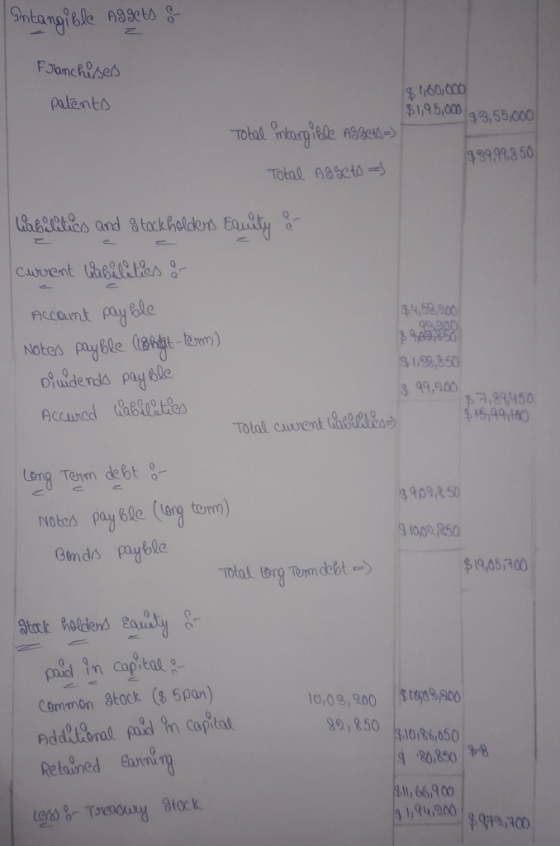 Intangible Assets :-
Franchises $1,60,000
Patents $1,95,000
Total intangible Assets => $3,55,000
Total Assets => $39,99,850
Liabilities and Stockholders Equity :-
Current Liabilities :-
Account payble $4,52,200
99,200
Notes payble (short-term)
Dividends payble $1,38,850
Accured Liabilities $ 99,200
Total current Liabilities => $7,89,450
$15,99,100
Long Term debt :-
Notes payble (long term) $9,02,850
Bonds payble $10,02,850
Total long Term debt => $19,05,700
Stock holders Equity :-
paid in capital :-
Common Stock ($ 5 par) 10,03,200 $10,03,200
Additional paid in capital 82,850 $10,86,050
Retained Earning $ 80,850 $ 8
$11,66,900
Less :- Treasury Stock $1,94,200 $9,72,700